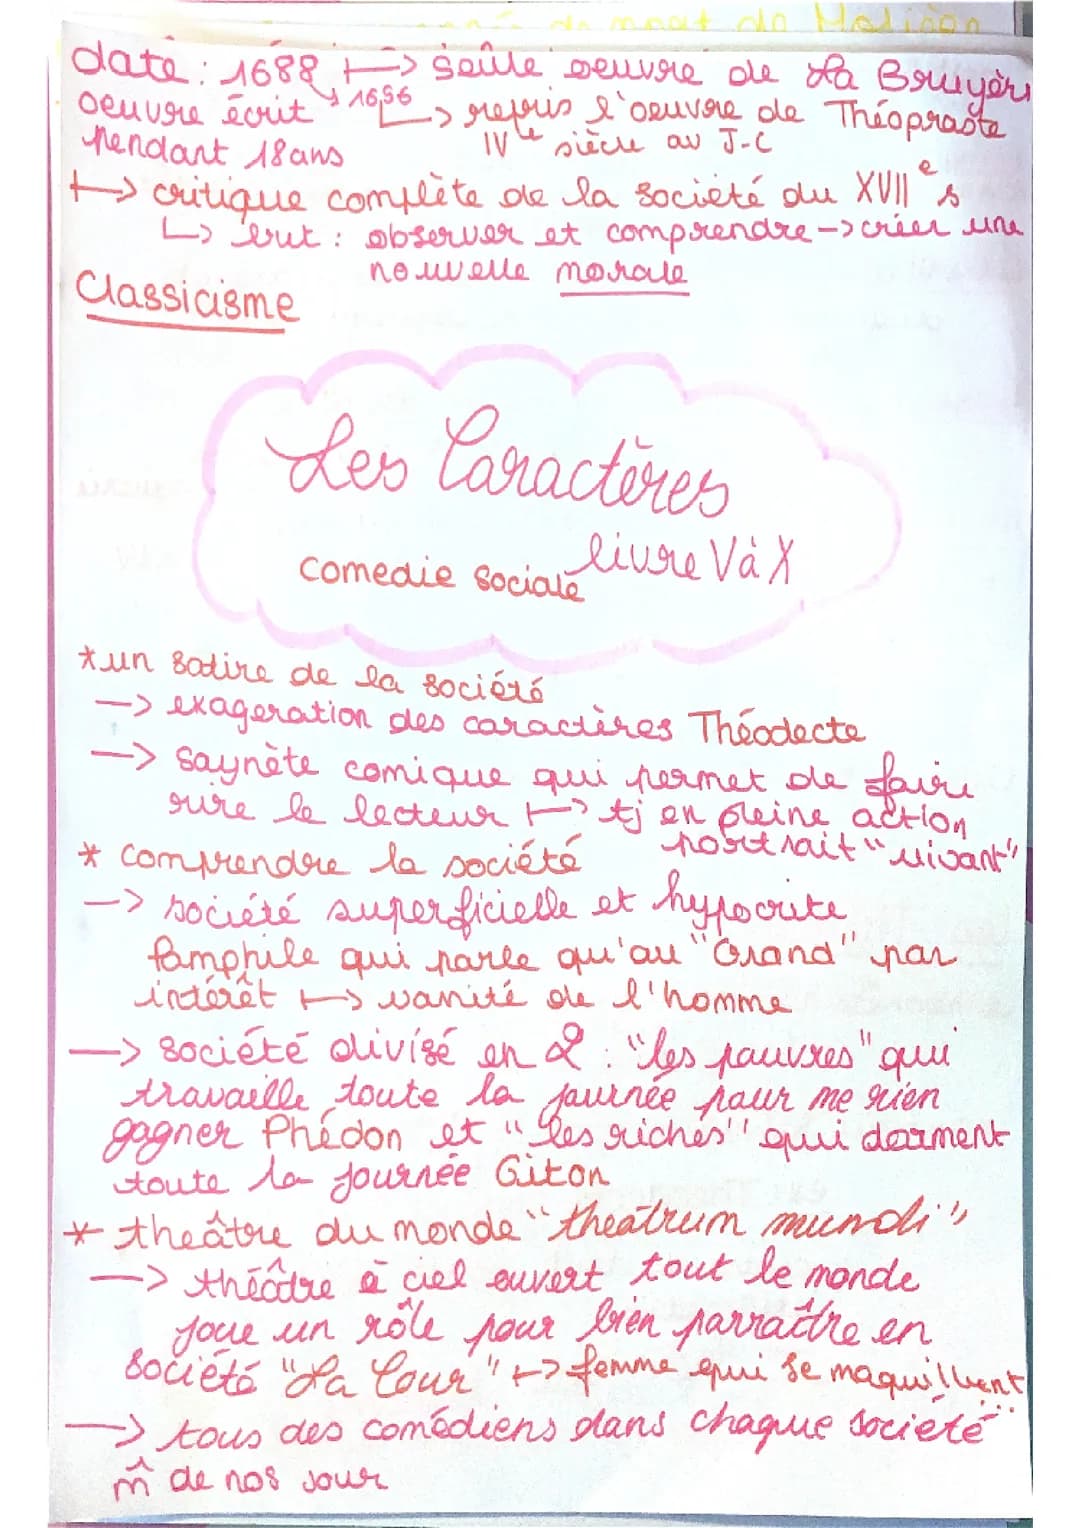 de Molière
date: 1688 ↦ seule oeuvre de La Bruyère
oeuvre écrit ↳ 1696 ↳ repris l'oeuvre de Théopraste
pendant 18ans IVe siècle av J-C
↦ critique complète de la société du XVIIe s
↳ but : observer et comprendre -> créer une
nouvelle morale
Classicisme
Les Caractères
livre V à X
Comedie sociale
* un satire de la société
-> exageration des caractères Théodecte
-> saynète comique qui permet de faire
rire le lecteur ↦ tj en pleine action
portrait "vivant"
* Comprendre la société
-> société superficielle et hypocrite
Pamphile qui parle qu'au "Grand" par
intérêt ↦ vanité de l'homme
-> société divisé en 2 : "les pauvres" qui
travaille toute la journée pour me rien
gagner Phédon et "les riches" qui dorment
toute la journée Giton
* theâtre du monde "theatrum mundi"
-> théâtre à ciel ouvert tout le monde
joue un rôle pour bien parraître en
société "La Cour" ↦ femme qui se maquillent...
-> tous des comédiens dans chaque société
m̂ de nos jour